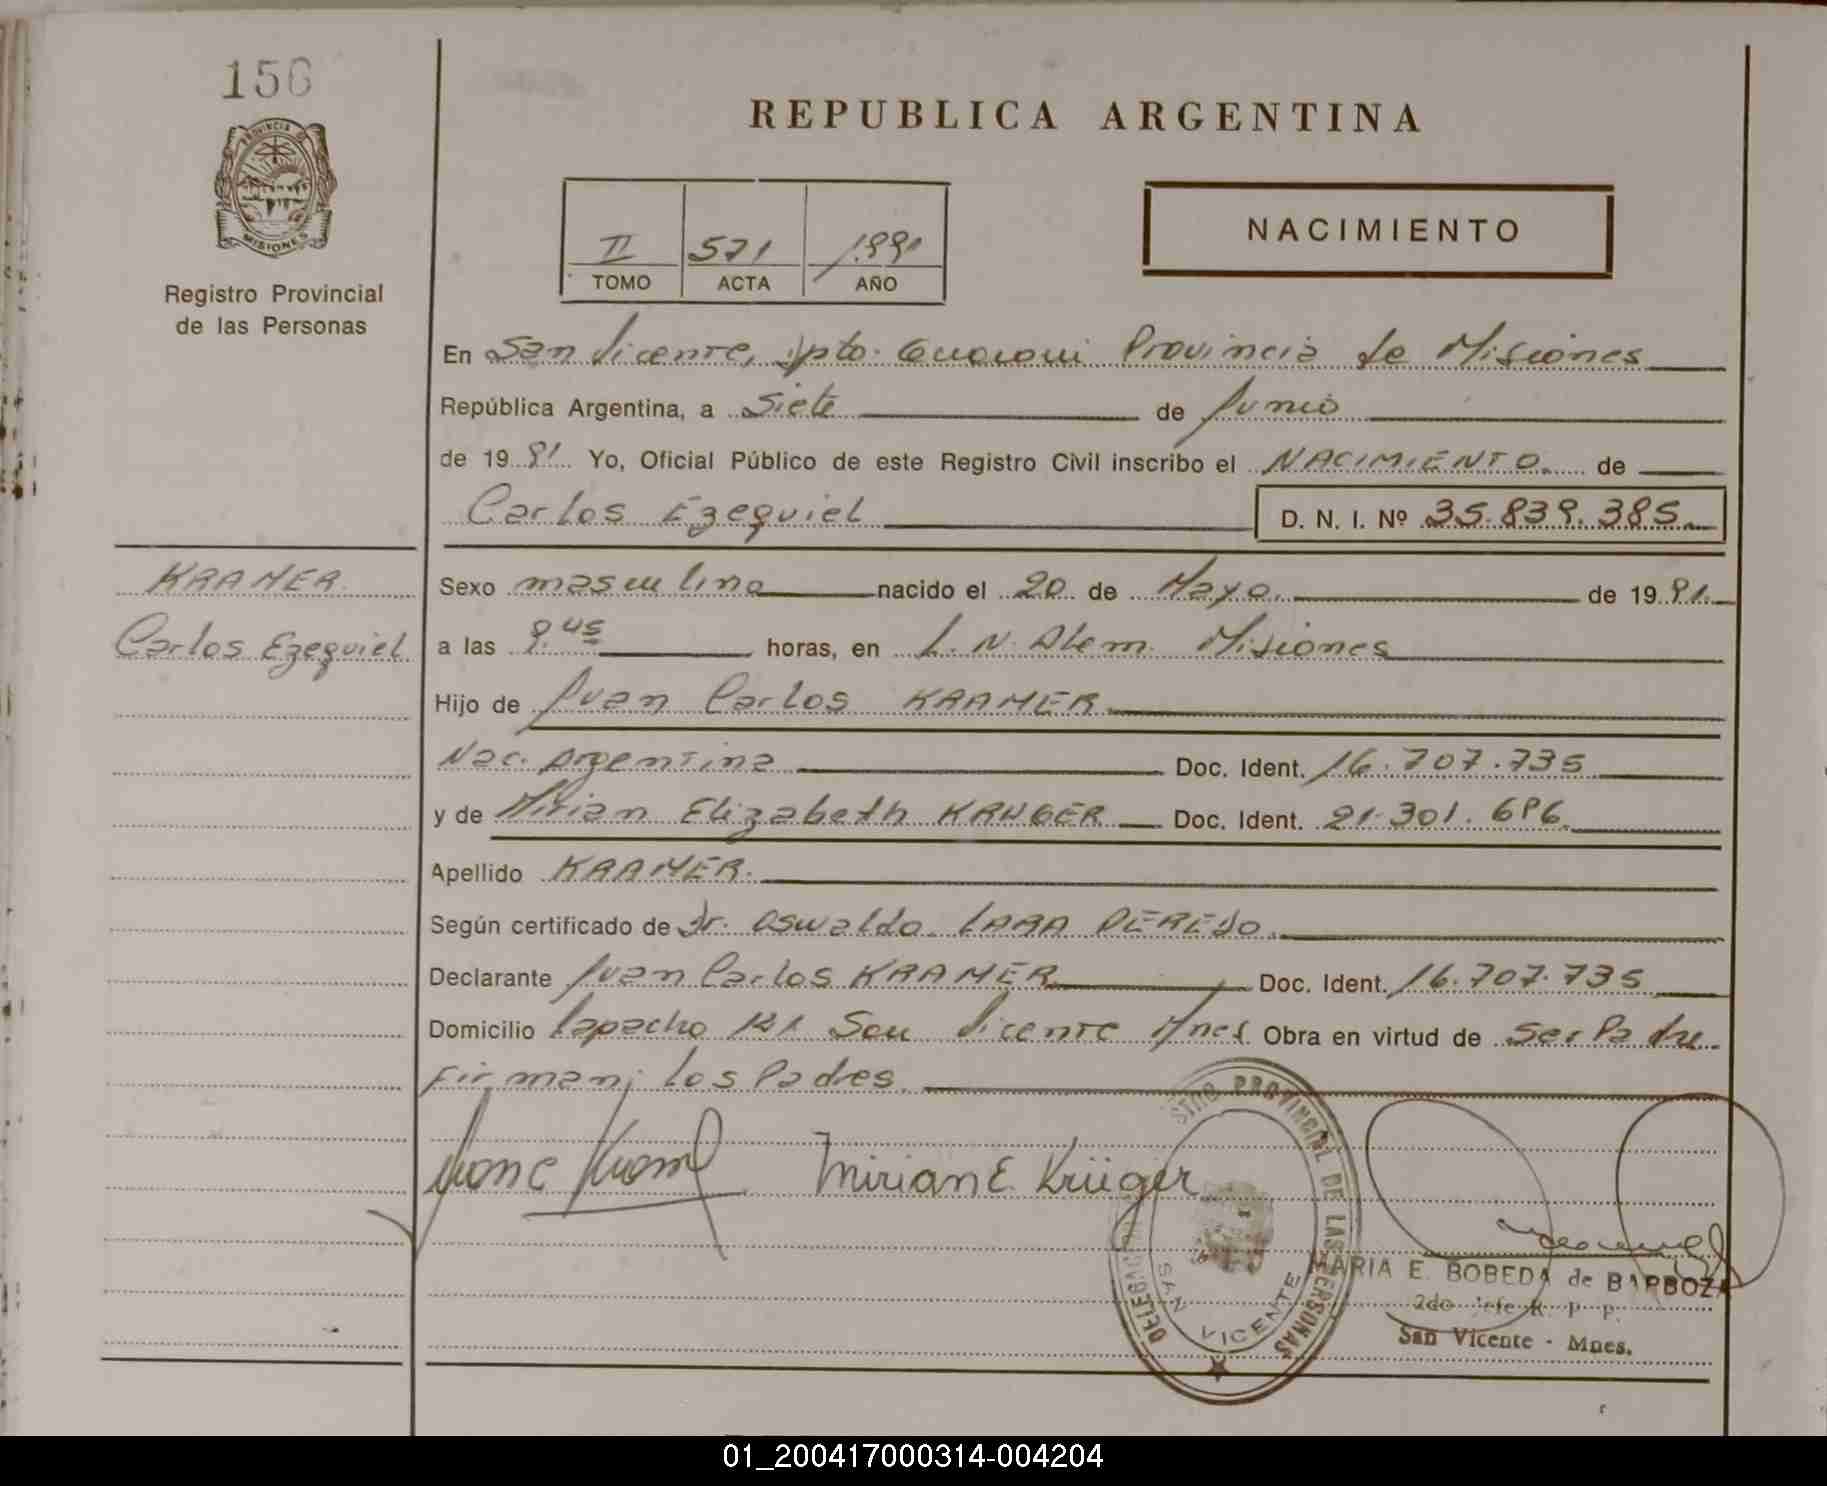 156
PROVINCIA DE
MISIONES
Registro Provincial
de las Personas
REPUBLICA ARGENTINA
II 571 1991
TOMO ACTA AÑO
NACIMIENTO
En San Vicente, Dpto. Guarani Provincia de Misiones
República Argentina, a Siete de Junio
de 1991 Yo, Oficial Público de este Registro Civil inscribo el NACIMIENTO de
Carlos Ezequiel D. N. I. Nº 35.839.385
KRAMER
Carlos Ezequiel
Sexo masculino nacido el 20 de Mayo de 1991
a las 9.45 horas, en L. N. Alem. Misiones
Hijo de Juan Carlos KRAMER
Nac. Argentina Doc. Ident. 16.707.735
y de Mirian Elizabeth KRUGER Doc. Ident. 21.301.696
Apellido KRAMER.
Según certificado de Dr. Oswaldo LARA PEREDO
Declarante Juan Carlos KRAMER Doc. Ident. 16.707.735
Domicilio Lapacho 121 San Vicente Mnes Obra en virtud de ser Padre
Firman; los Padres
Mirian E. Krüger
DELEGACION PROVINCIAL DE LAS PERSONAS
SAN VICENTE
MARIA E. BOBEDA de BARBOZA
2do Jefe R. P. P.
San Vicente - Mnes.
01_200417000314-004204